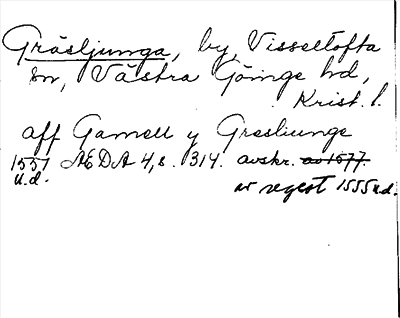 Gräsljunga, by, Visseltofta
sn, Västra Göinge hd,
Krist. l.
aff Gamell y Gresliunge
1551 AEDA 4, s. 314. avskr. av 1577.
u.d. av regest 1555 u.d.